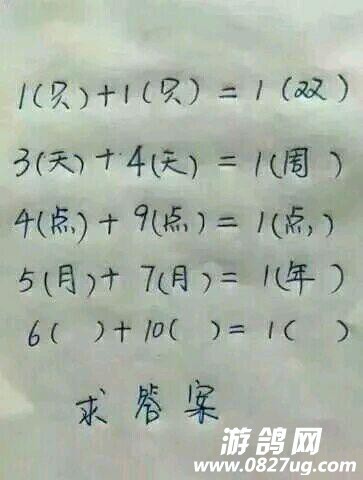 1(只)+1(只)=1(双)
3(天)+4(天)=1(周)
4(点)+9(点)=1(点)
5(月)+7(月)=1(年)
6( )+10( )=1( )
求答案
游鸽网
www.0827ug.com